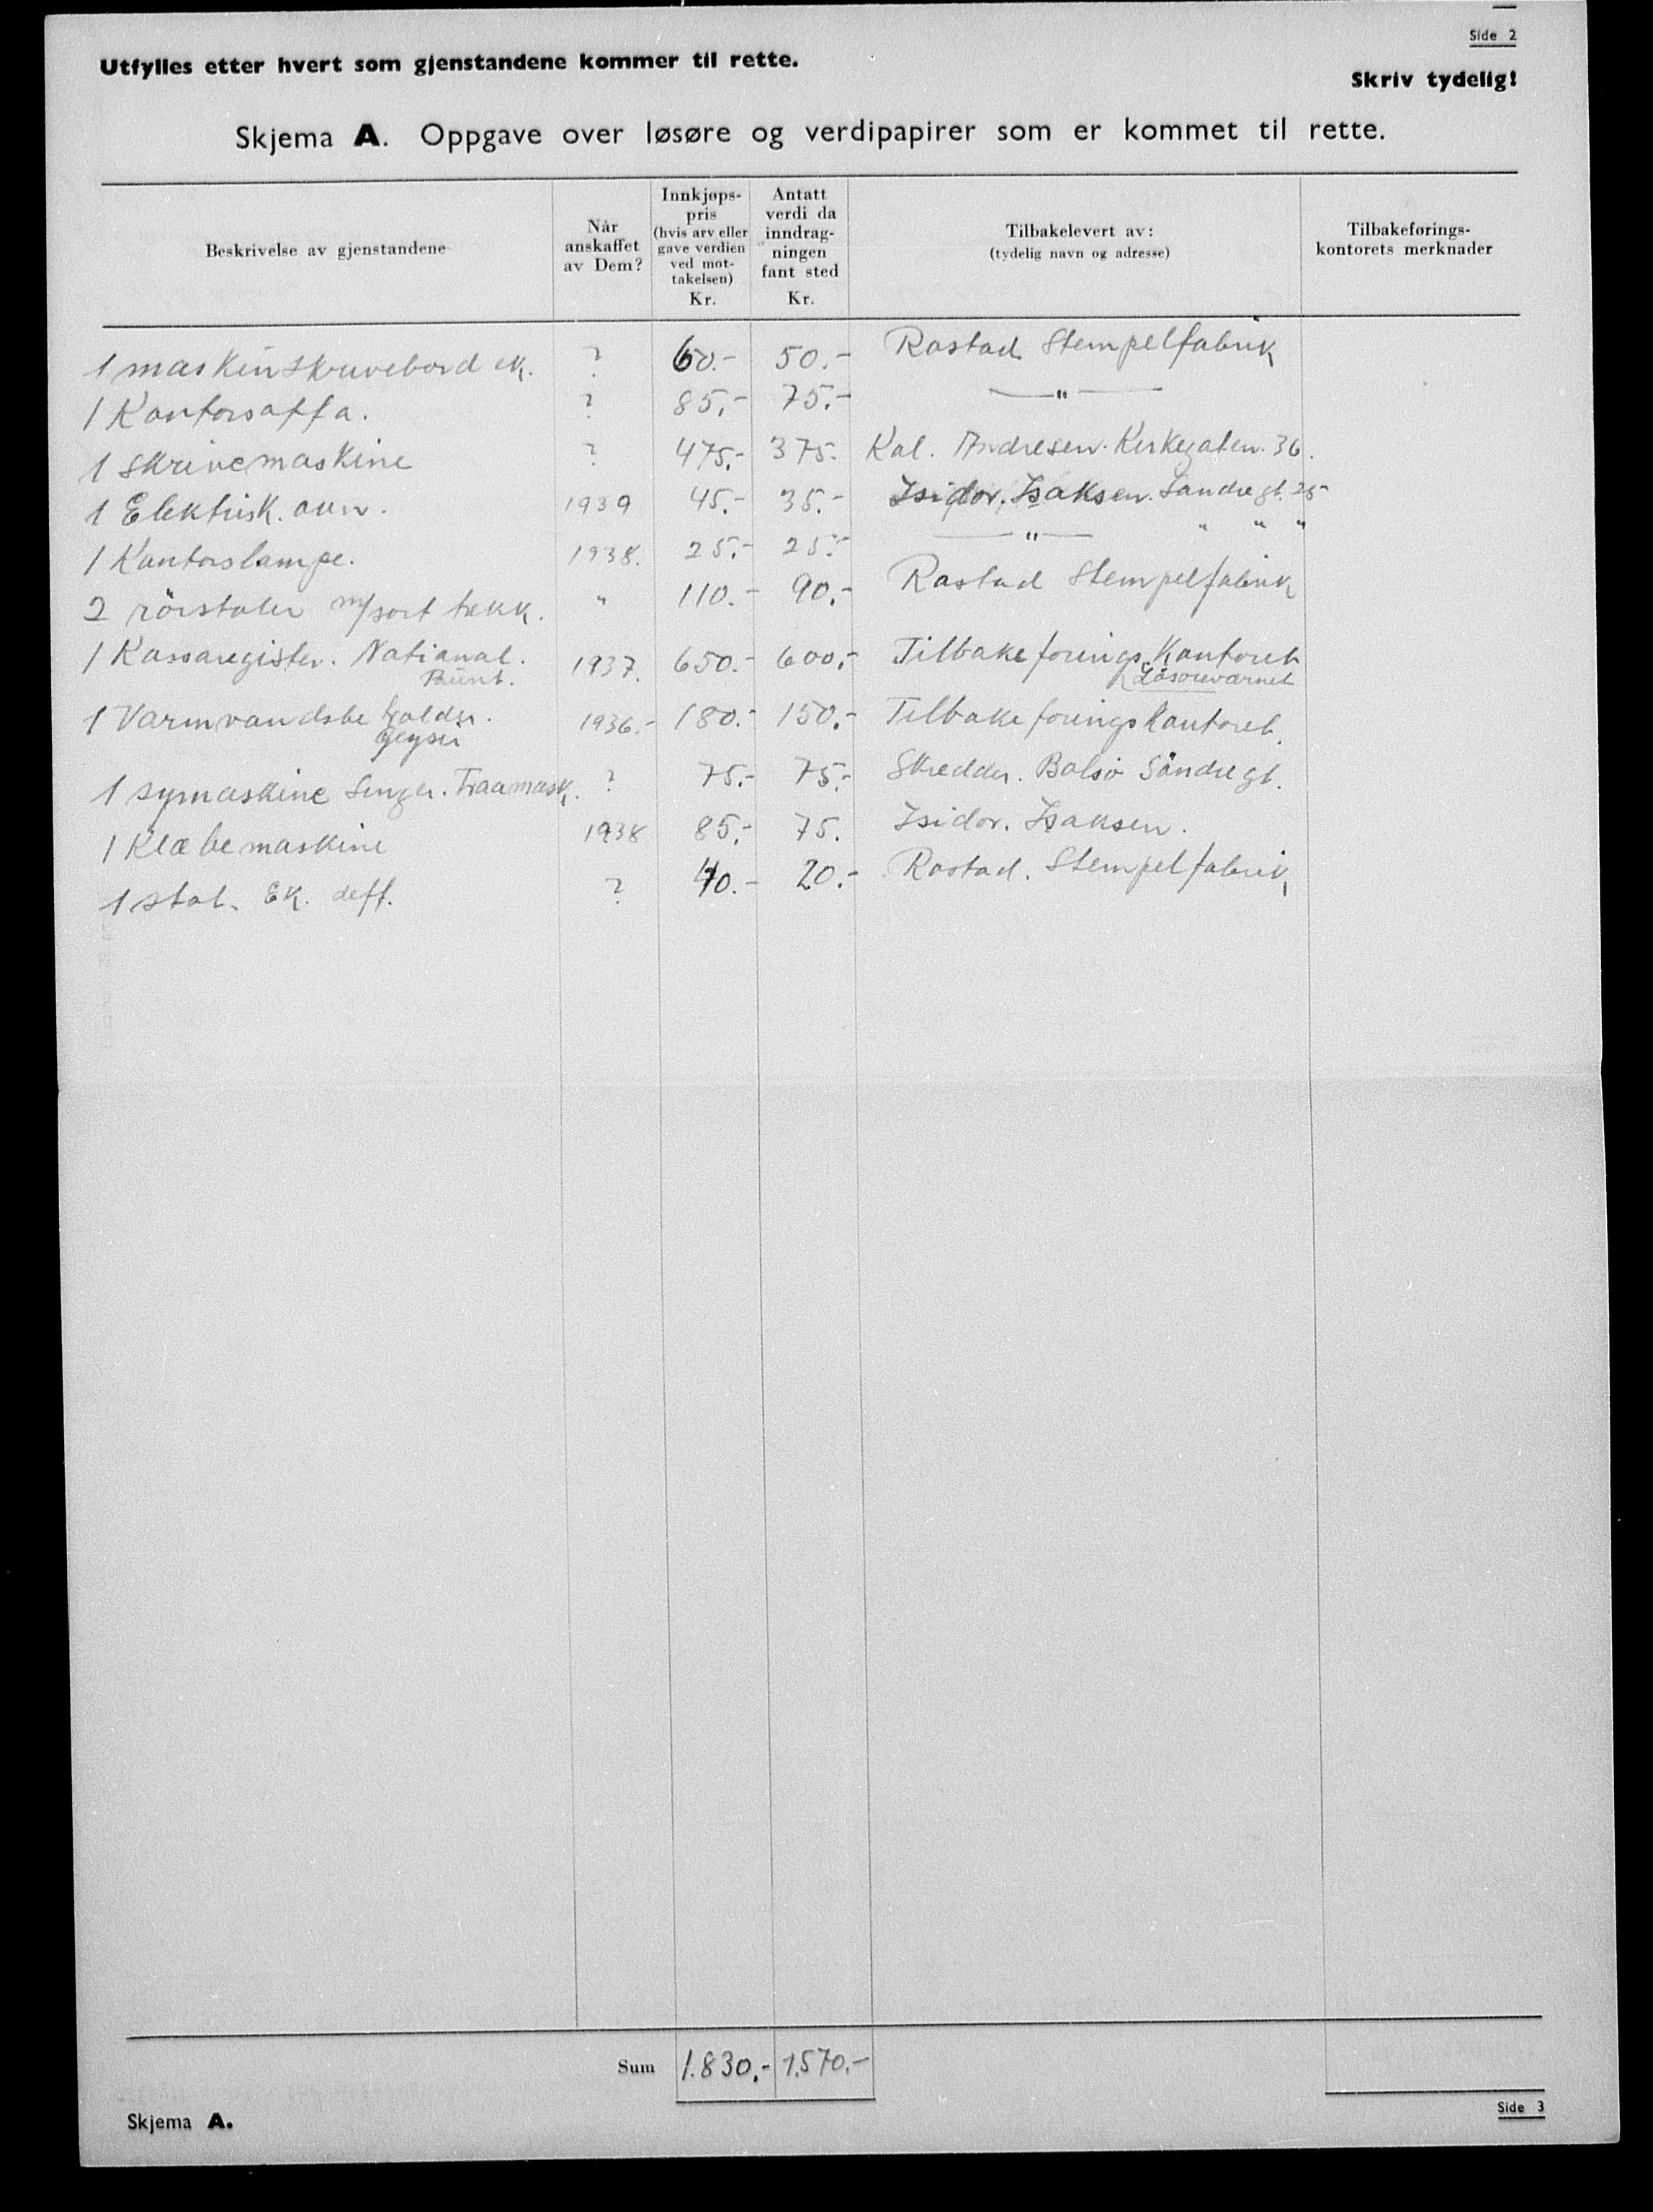 Side 2
Utfylles etter hvert som gjenstandene kommer til rette.
Skriv tydelig!
Skjema A. Oppgave over løsøre og verdipapirer som er kommet til rette.
Beskrivelse av gjenstandene
Når
anskaffet
av Dem?
Innkjøps-
pris
(hvis arv eller
gave verdien
ved mot-
takelsen)
Kr.
Antatt
verdi da
inndrag-
ningen
fant sted
Kr.
Tilbakelevert av:
(tydelig navn og adresse)
Tilbakeførings-
kontorets merknader
1 maskinskrivebord ek. ? 60.- 50.- Rastad Stempelfabrik
1 Kontorsoffa. ? 85,- 75,- — " —
1 Skrivemaskine ? 475,- 375.- Kal. Andresen. Kirkegaten. 36.
1 Elektrisk. ovn. 1939 45,- 35.- Isidor. Isaksen. Søndre gt. 25
1 Kontorslampe. 1938. 25,- 25,- — " — " " "
2 rörstoler m/sort trekk. " 110.- 90,- Rastad Stempelfabrik
1 Kassaregister. National. 1937. 650.- 600,- Tilbakeförings Kontoret
Løsörevarnet
1 Varmvandsbeholder. 1936.- 180.- 150,- Tilbakeförings Kontoret.
Geyser
1 symaskine Singer. Traamask. ? 75.- 75,- Skredder. Balsö Söndre gt.
1 Klæbemaskine 1938 85,- 75. Isidor. Isaksen.
1 stol. Ek. deff. ? 40.- 20.- Rastad. Stempelfabrik
Sum 1.830,- 1.570.-
Skjema A.
Side 3